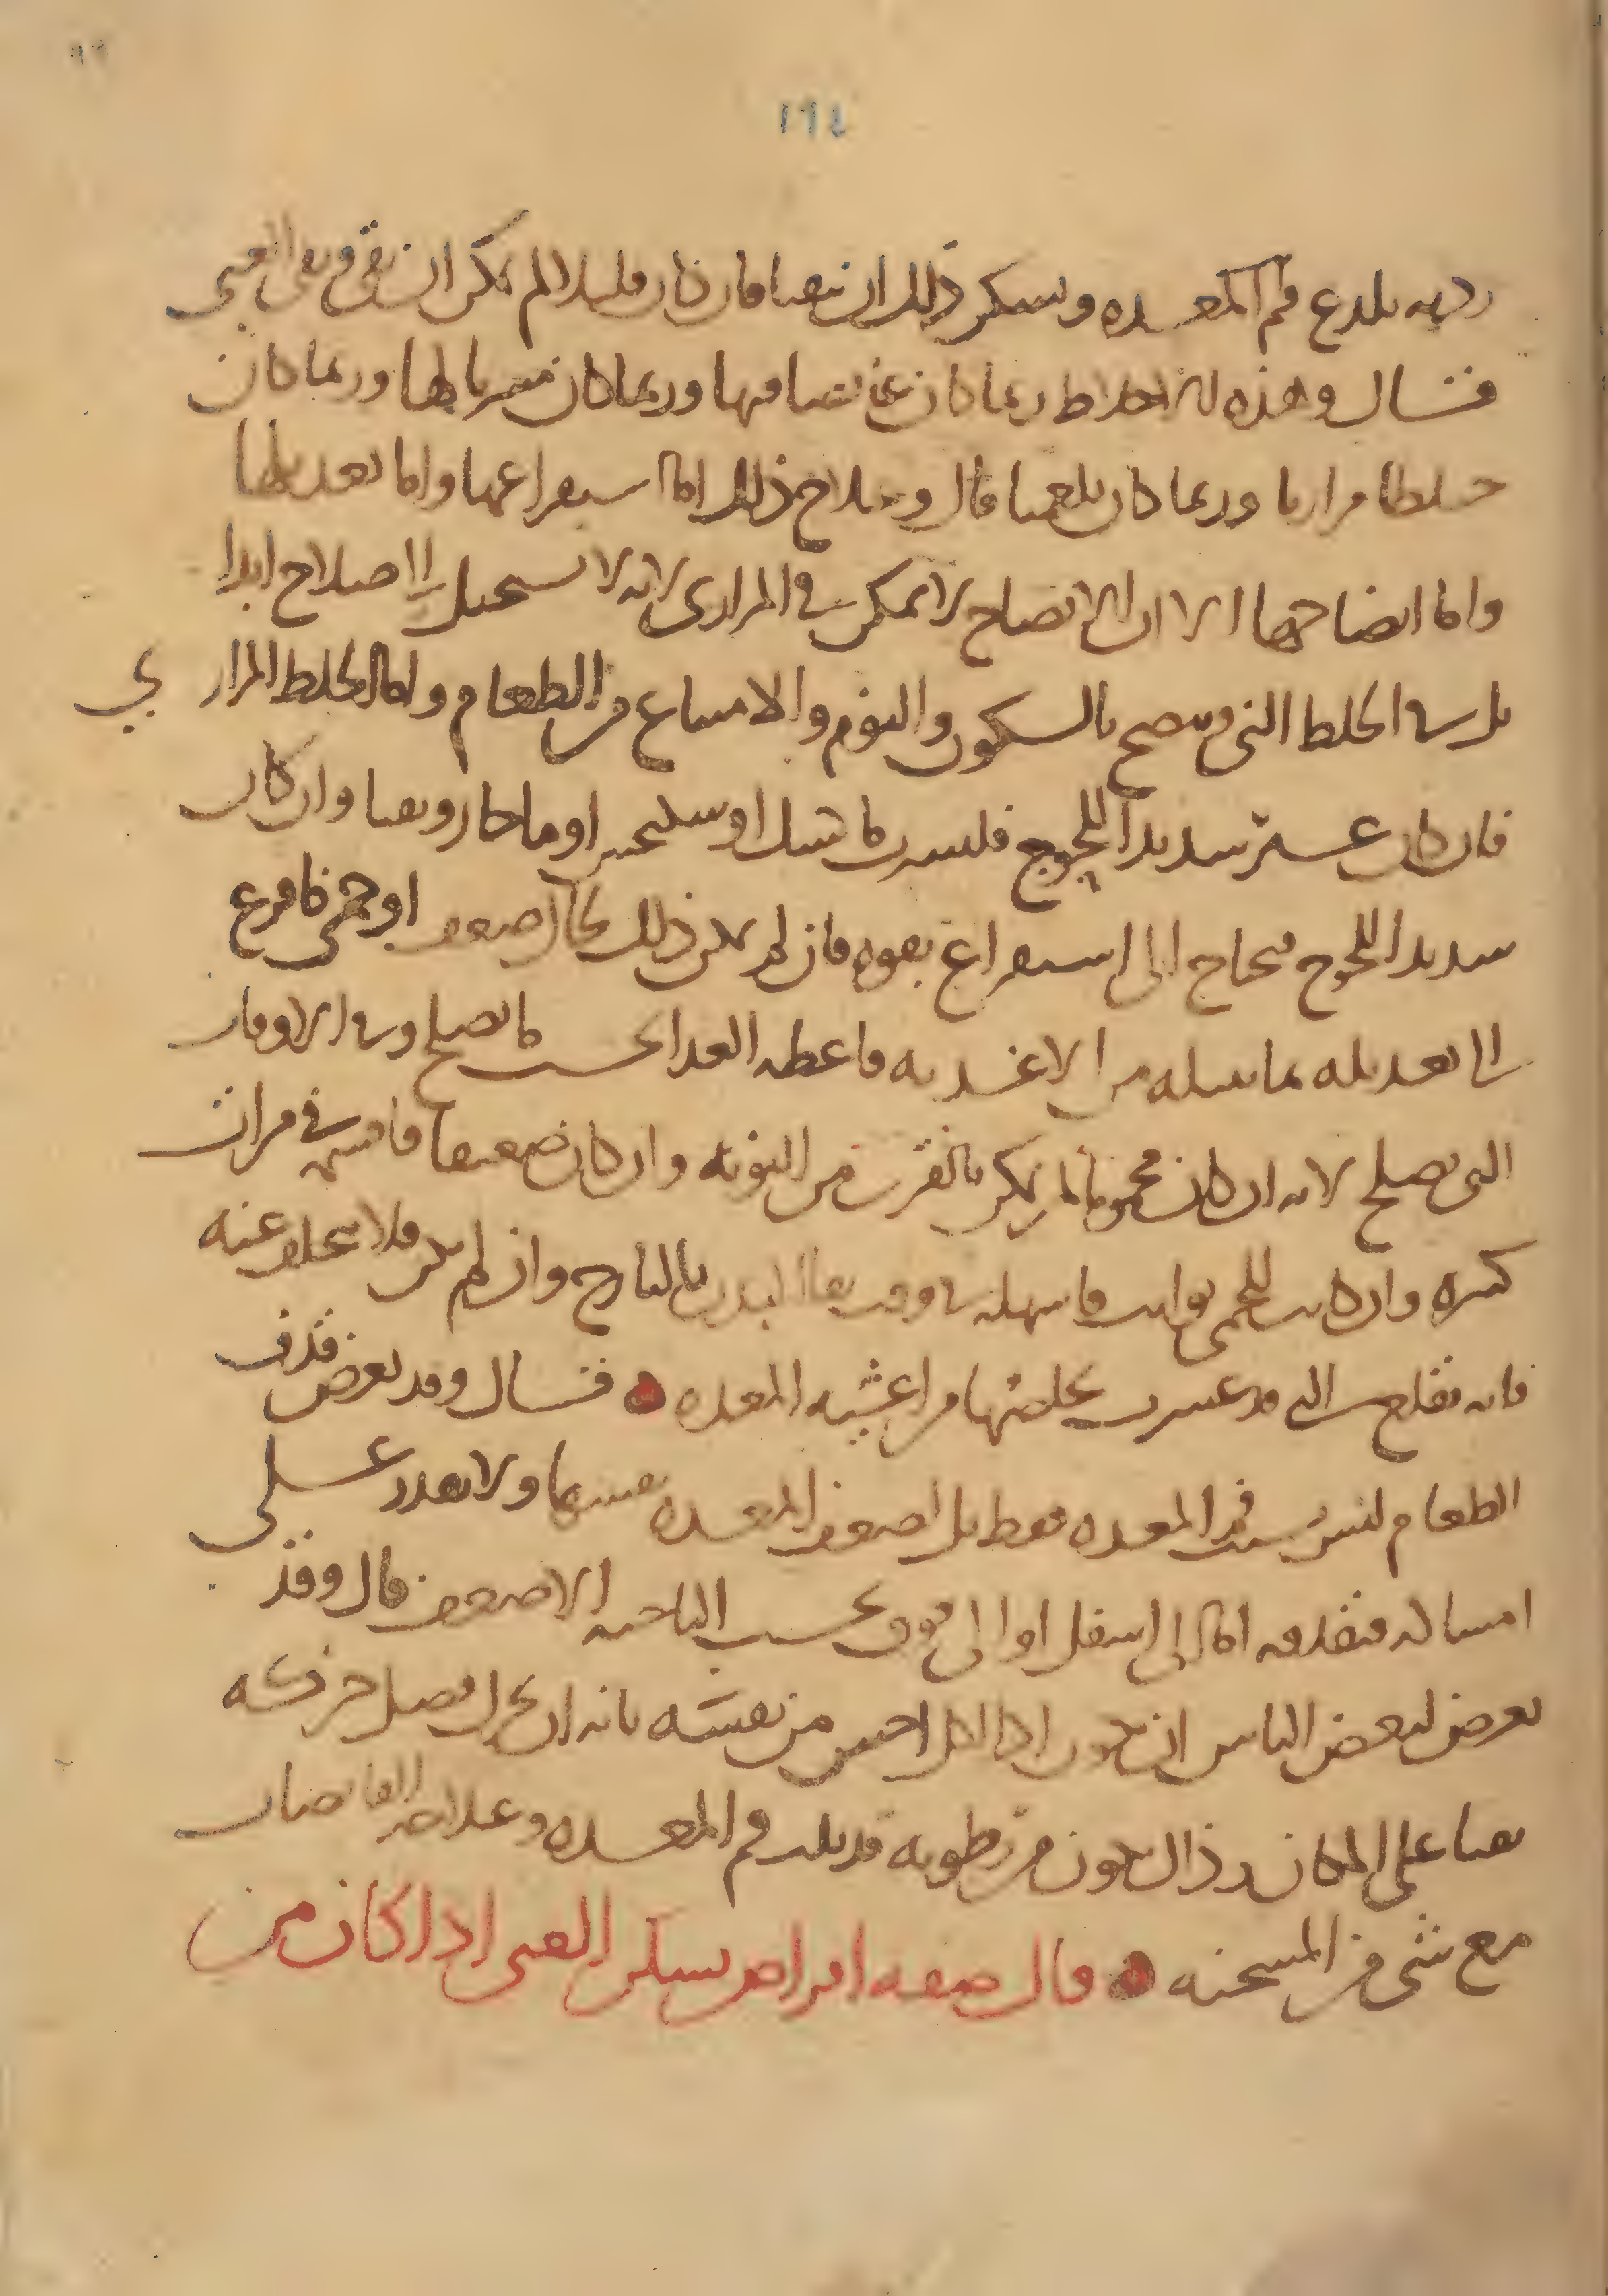 ١٩٤
رديه يلدع فم المعده وسكن ذلك ان يتقيا فان كان قليلا لم يمكن ان يقى وبقى الغثى
قال وهذه الاخلاط ربما كان غايصا فيها وربما كان متشربا لها وربما كان
خلطا مراريا وربما كان بلغميا قال وعلاج ذلك اما استفراغها واما تعديلها
واما انضاجها الا ان الانضاج لا يمكن في المراري لانه لا يستحيل الى صلاح ابدا
بل في الخلط الني وينضج بالسكون والنوم والامتناع من الطعام واما الخلط المراري
فان كان غير شديد اللحوج فليسق ما عسل او سكنجبين او ما حار ويقيا وان كان
شديد اللحوج فيحتاج الى استفراغ بقوه فان لم يمكن ذلك لحال ضعف او حمى فافزع
الى تعديله بما يبدله من الاغذيه فاعطه الغدا بحسب ما يصلح وفي الاوقات
التي تصلح لانه ان كان محموما لم يكن بالقرب من النوبه وان كان ضعيفا فاقسمه في مرات
كثيره وان كانت للحمى نوايب فاسهله في وقت نقا البدن بالايارج وان لم يكن فلا تتخلف عنه
فانه يقلع التي قد عسر تخلصها من اغشيه المعده قال وقد يعرض قذف
الطعام ليس بسبب فم المعده فقط بل لضعف المعده نفسها ولا تقدر على
امساكه فتقذفه اما الى اسفل او الى فوق بحسب الناحيه الاضعف قال وقد
يعرض لبعض الناس ان يكون اذا اكل احس من نفسه بانه ان تحرك فضل حركه
تقيا على المكان وذلك يكون من رطوبه قد بلت فم المعده وعلاجه القابضات
مع شي من المسخنه قال صفه اقراص يسكن الغثى اذا كان من